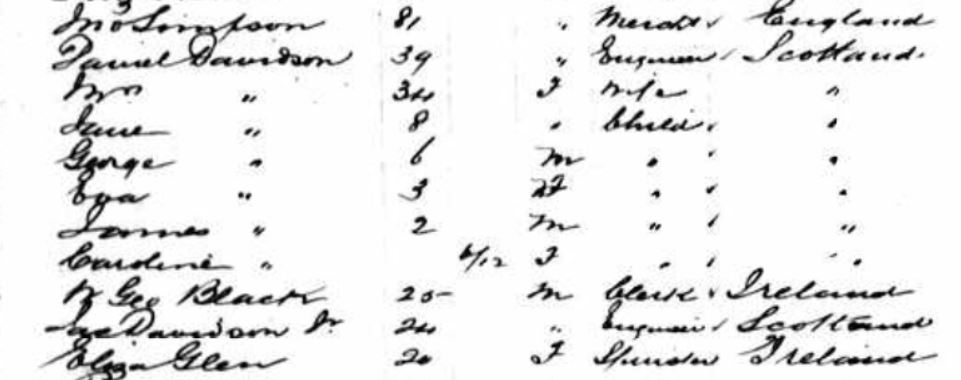 Jno Simpson 81 " Mercht England
Daniel Davidson 39 " Engineer Scotland
Mrs " 34 F Wife "
Jane " 8 " Child "
George " 6 M " "
Eva " 3 F " "
James " 2 M " "
Caroline " 6/12 F " "
W Geo Black 25 M Clerk Ireland
Jas Davidson Jr 24 " Engineer Scotland
Eliza Glen 20 F Spinster Ireland